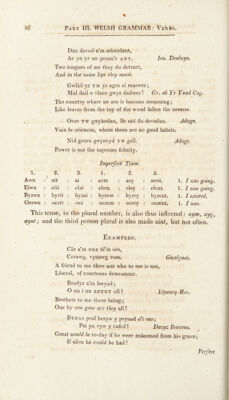 98 PART III. WELSH GRAMMAR: VERBS.
Dau davod a'm athrodant,
Ac yn yr un genau'r ANT. Ieu. Deulwyn.
Two tongues of me they do detract,
And in the same lips they meet.
Gwlâd yr YM yn agro ei marwer;
Mal dail o vlaen gwyz dadwer! Gr. ab Yr Ynad Coç.
The country where we are is become mourning;
Like leaves from the top of the wood fallen the reverse.
Over YW gwybodau, lle nid da devodau. Adage.
Vain is sciences, where there are no good habits.
Nid green gwynvyd YW gall. Adage.
Power is not the supreme felicity.
Imperfect Tense.
1. 2. 3. 1. 2. 3.
Awn : ait : ai : aem : aeç : aent, 1. I was going.
Elwn : elit : elai : elem : eleç : elent. 1. I was going.
Byzwn : byzit : byzai : byzem : byzeç : byzent. 1. I existed.
Oezwn : oezit : oez : oezem : oezeç : oezent. 1. I was.
This tense, in the plural number, is also thus inflected: aym, ayç,
aynt; and the third person plural is also made aint, but not often.
EXAMPLES.
Câr a'm OEZ ni'm oes,
Coraug, vynawg voes. Gwalçmai.
A friend to me there was who to me is not,
Liberal, of courteous demeanour.
Brodyr a'm bwyad;
O un i un ELYNT oll! Llywarç Hen.
Brothers to me there being;
One by one gone are they all!
BYZAI praf heziw y prynid o'i ras;
Pei yn vyw y cafed! Dewys Benvras.
Great would be to-day if he were redeemed from his grave;
If alive he could be had!
Perfect